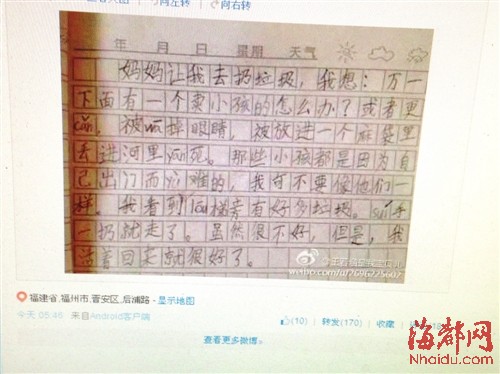 向左转 向右转
年 月 日 星期 天气
妈妈让我去扔垃圾，我想：万一
下面有一个卖小孩的怎么办？或者更
cǎn，被wā掉眼睛，被放进一个麻袋里
丢进河里yān死。那些小孩都是因为自
己出门而yù难的，我可不要像他们一
样。我看到lóu梯旁有好多垃圾。suí手
一扔就走了。虽然很不好，但是，我
活着回来就很好了。
weibo.com/u/2696225607
福建省,福州市,晋安区,后浦路 - 显示地图
今天 05:46 来自Android客户端
(10) 转发(170) 收藏
查看更多微博»
海都网
Nhaidu.com